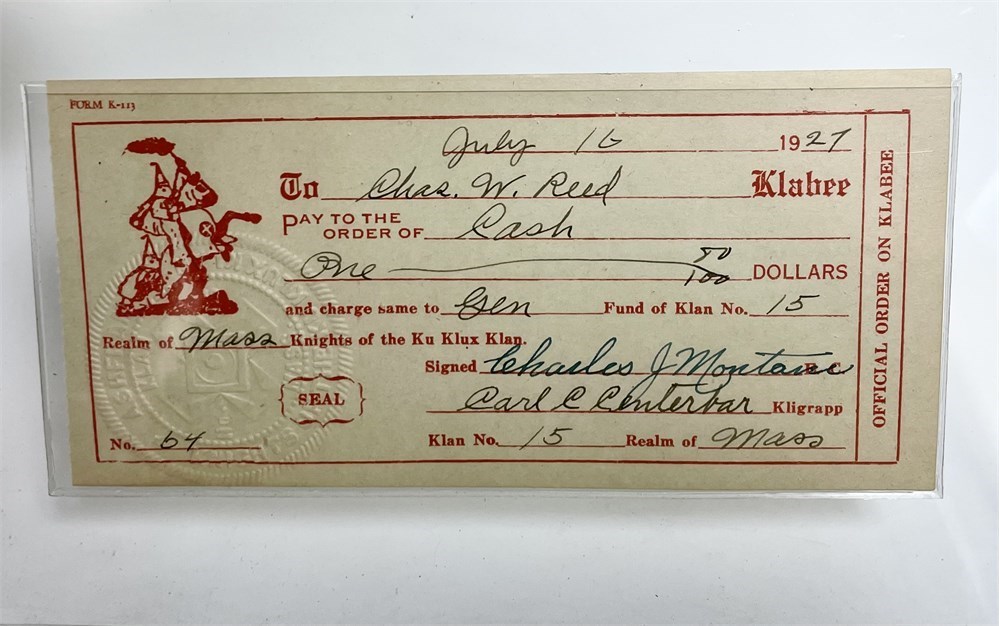 FORM K-113
July 16 1927
To Chas. W. Reed Klabee
PAY TO THE
ORDER OF Cash
One 50/100 DOLLARS
and charge same to Gen Fund of Klan No. 15
Realm of Mass Knights of the Ku Klux Klan.
Signed Charles J Montani E.C.
Carl C Centerbar Kligrapp
SEAL
No. 64 Klan No. 15 Realm of Mass
OFFICIAL ORDER ON KLABEE